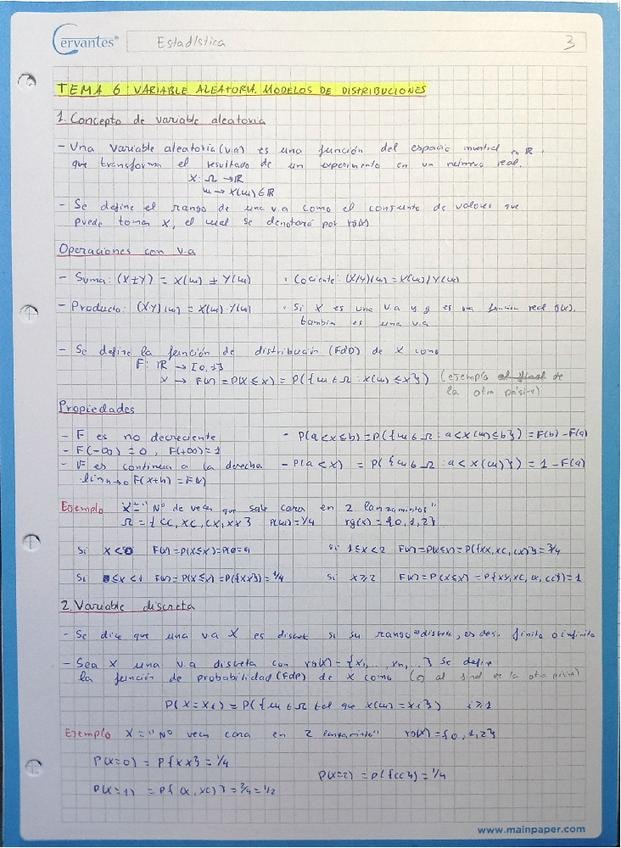 Cervantes® Estadística 3
TEMA 6: VARIABLE ALEATORIA. MODELOS DE DISTRIBUCIONES
1. Concepto de variable aleatoria
- Una variable aleatoria (v.a) es una función del espacio muestral en ℝ
que transforma el resultado de un experimento en un número real.
X: Ω → ℝ
ω → X(ω) ∈ ℝ
- Se define el rango de una va como el conjunto de valores que
puede tomar X, el cual se denotará por rg(x)
Operaciones con v.a
- Suma: (X±Y) = X(ω) ± Y(ω) · Cociente: (X/Y)(ω) = X(ω)/Y(ω)
- Producto: (XY)(ω) = X(ω)·Y(ω) · Si X es una va y g es una función real g(x),
también es una v.a
- Se define la función de distribución (FdD) de X como
F: ℝ → [0,1]
X → F(x) = P(X≤x) = P({ω∈Ω : X(ω)≤x}) (ejemplo al final de
la otra página)
Propiedades
- F es no decreciente - P(a<x≤b) = P({ω∈Ω : a<X(ω)≤b}) = F(b) - F(a)
- F(-∞) = 0, F(+∞) = 1
- F es continua a la derecha - P(a<x) = P({ω∈Ω : a<X(ω)}) = 1 - F(a)
F(x+h) = F(x)
Ejemplo X = "Nº de veces que sale cara en 2 lanzamientos"
Ω = {CC, XC, CX, XX} P(ω) = 1/4 rg(x) = {0,1,2}
Si X<0 F(x) = P(X≤x) = Si 1≤x<2 F(x) = P(X≤x) = P({XX, XC, CX}) = 3/4
Si 0≤x<1 F(x) = P(X≤x) = P({XX}) = 1/4 Si x≥2 F(x) = P(X≤x) = P{XX, XC, CX, CC}) = 1
2. Variable discreta
- Se dice que una va X es discreta si su rango es discreto, es decir finito o infinito
- Sea X una v.a discreta con rg(x) = {x1, ... xn, ...} Se define
la función de probabilidad (FdP) de X como al final de la otra página)
P(X = Xi) = P({ω∈Ω tal que X(ω) = Xi}) i≥1
Ejemplo X = "Nº veces cara en 2 lanzamientos" rg(x) = {0,1,2}
P(X=0) = P{XX} = 1/4
P(X=2) = P({CC}) = 1/4
P(X=1) = P{CX, XC} = 2/4 = 1/2
www.mainpaper.com